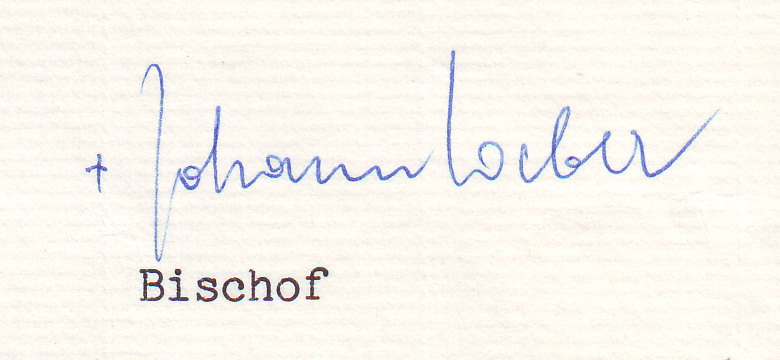 + Johann Loeber
Bischof